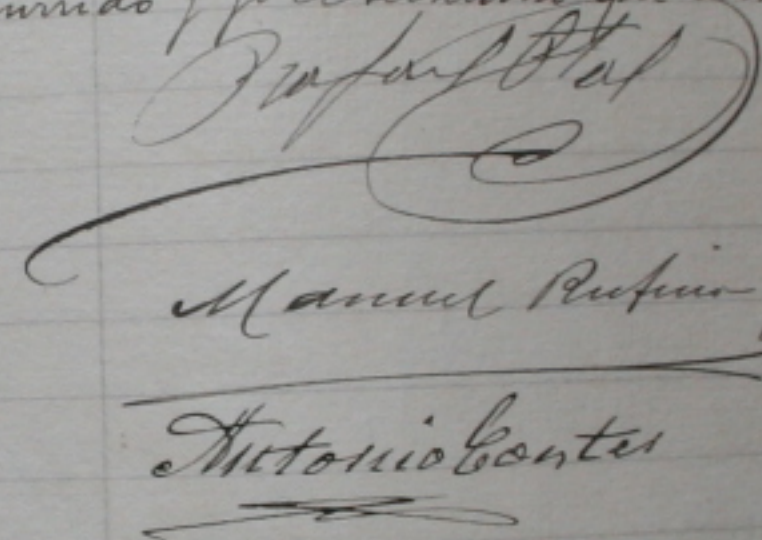 Rafael Otal
Manuel Rufino
Antonio Cortes